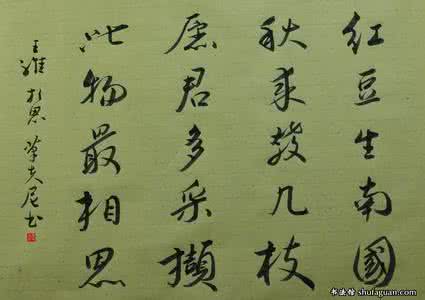 红豆生南國
秋来發几枝
愿君多采擷
此物最相思
王维 思 夫尼书
书法馆 shufaguan.com